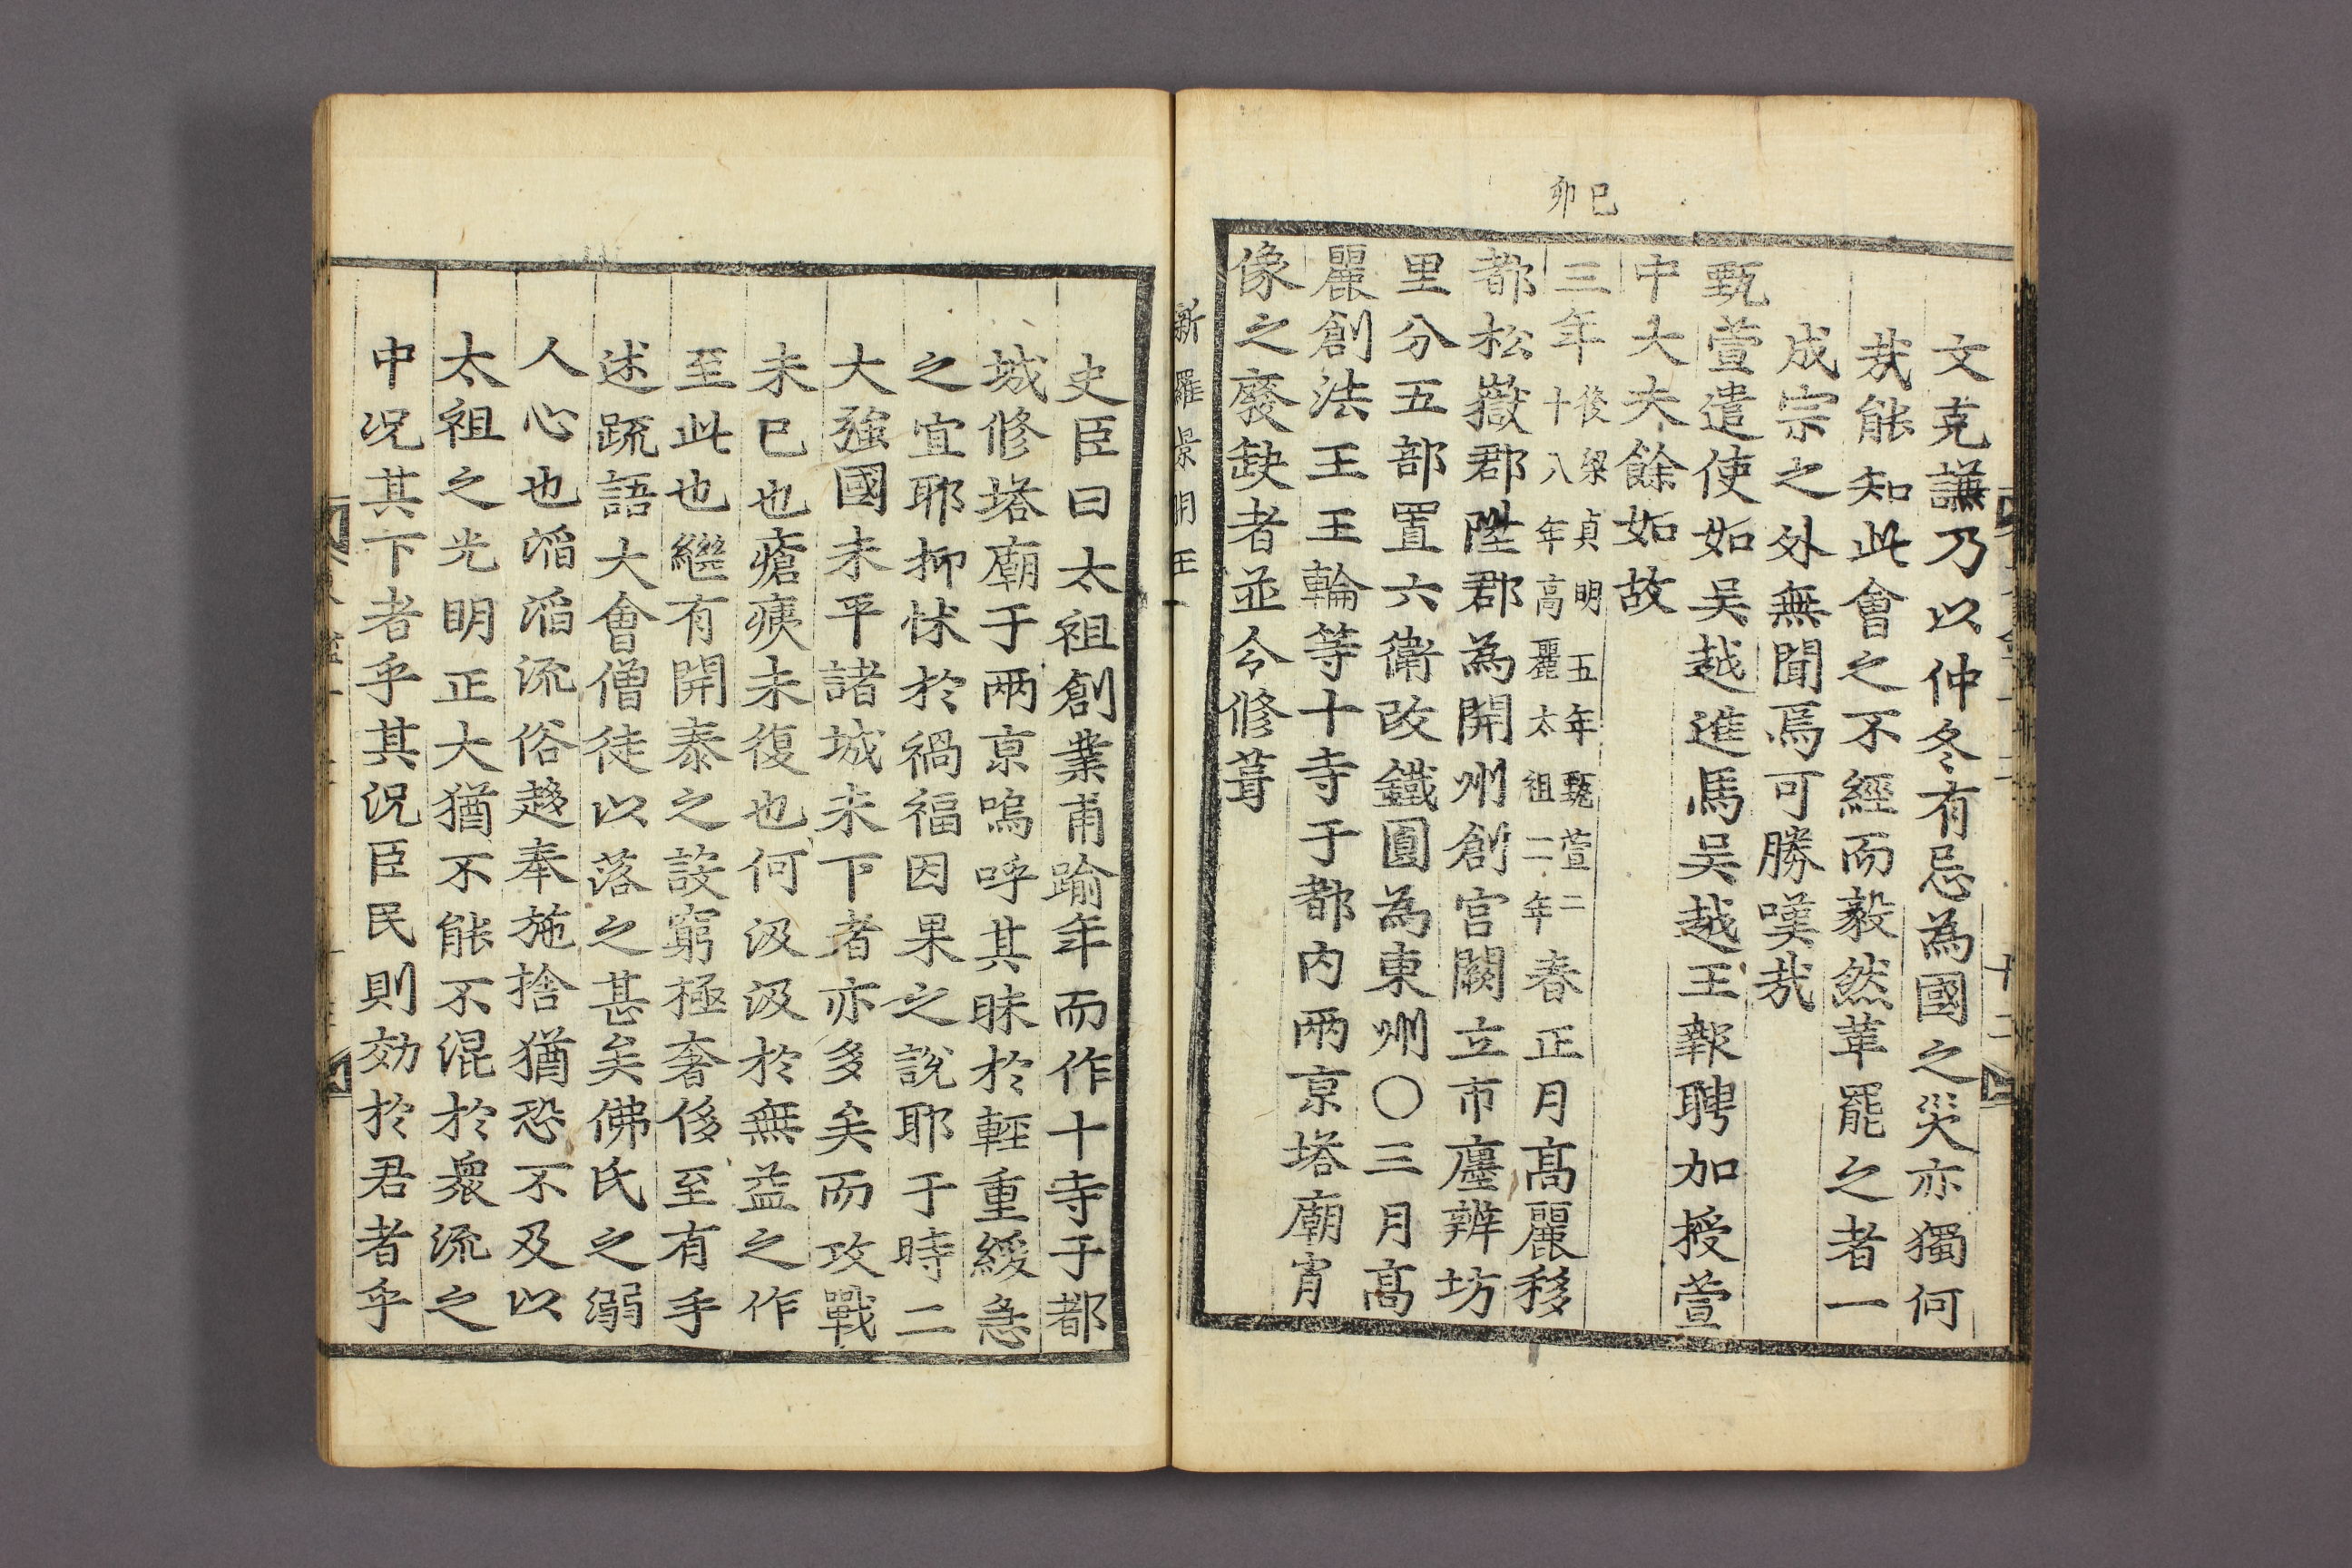 文克謙乃以仲冬有忌為國之災亦獨何
哉能知此會之不經而毅然革罷之者一
成宗之外無聞焉可勝嘆哉
甄萱遣使如吴越進馬吴越王報聘加授萱
中大夫餘如故
己卯
三年後梁貞明五年甄萱二十八年高麗太祖二年春正月髙麗移
都松嶽郡陞郡為開州創宫闕立市廛辨坊
里分五部置六衛改鐵圓為東州○三月髙
麗創法王王輪等十寺于都内兩京塔廟肖
像之廢缺者並令修葺
新羅景明王
史臣曰太祖創業甫踰年而作十寺于都
城修塔廟于兩京嗚呼其昧於輕重緩急
之宜耶抑怵於禍福因果之說耶于時二
大強國未平諸城未下者亦多矣而攻戰
未已也瘡痍未復也何汲汲於無益之作
至此也繼有開泰之設窮極奢侈至有手
述䟽語大會僧徒以落之甚矣佛氏之溺
人心也滔滔流俗趍奉施捨猶恐不及以
太祖之光明正大猶不能不混於衆流之
中况其下者乎其況臣民則効於君者乎